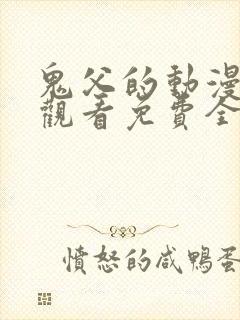 鬼父的動漫
觀看免費全
憤怒的咸鴨蛋